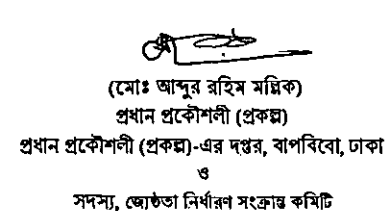 (মোঃ আব্দুর রহিম মল্লিক)
প্রধান প্রকৌশলী (প্রকল্প)
প্রধান প্রকৌশলী (প্রকল্প)-এর দপ্তর, বাপবিবো, ঢাকা
ও
সদস্য, জ্যেষ্ঠতা নির্ধারণ সংক্রান্ত কমিটি